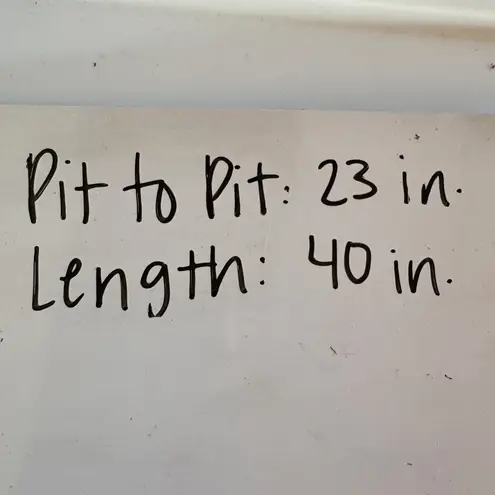 Pit to Pit: 23 in.
Length: 40 in.